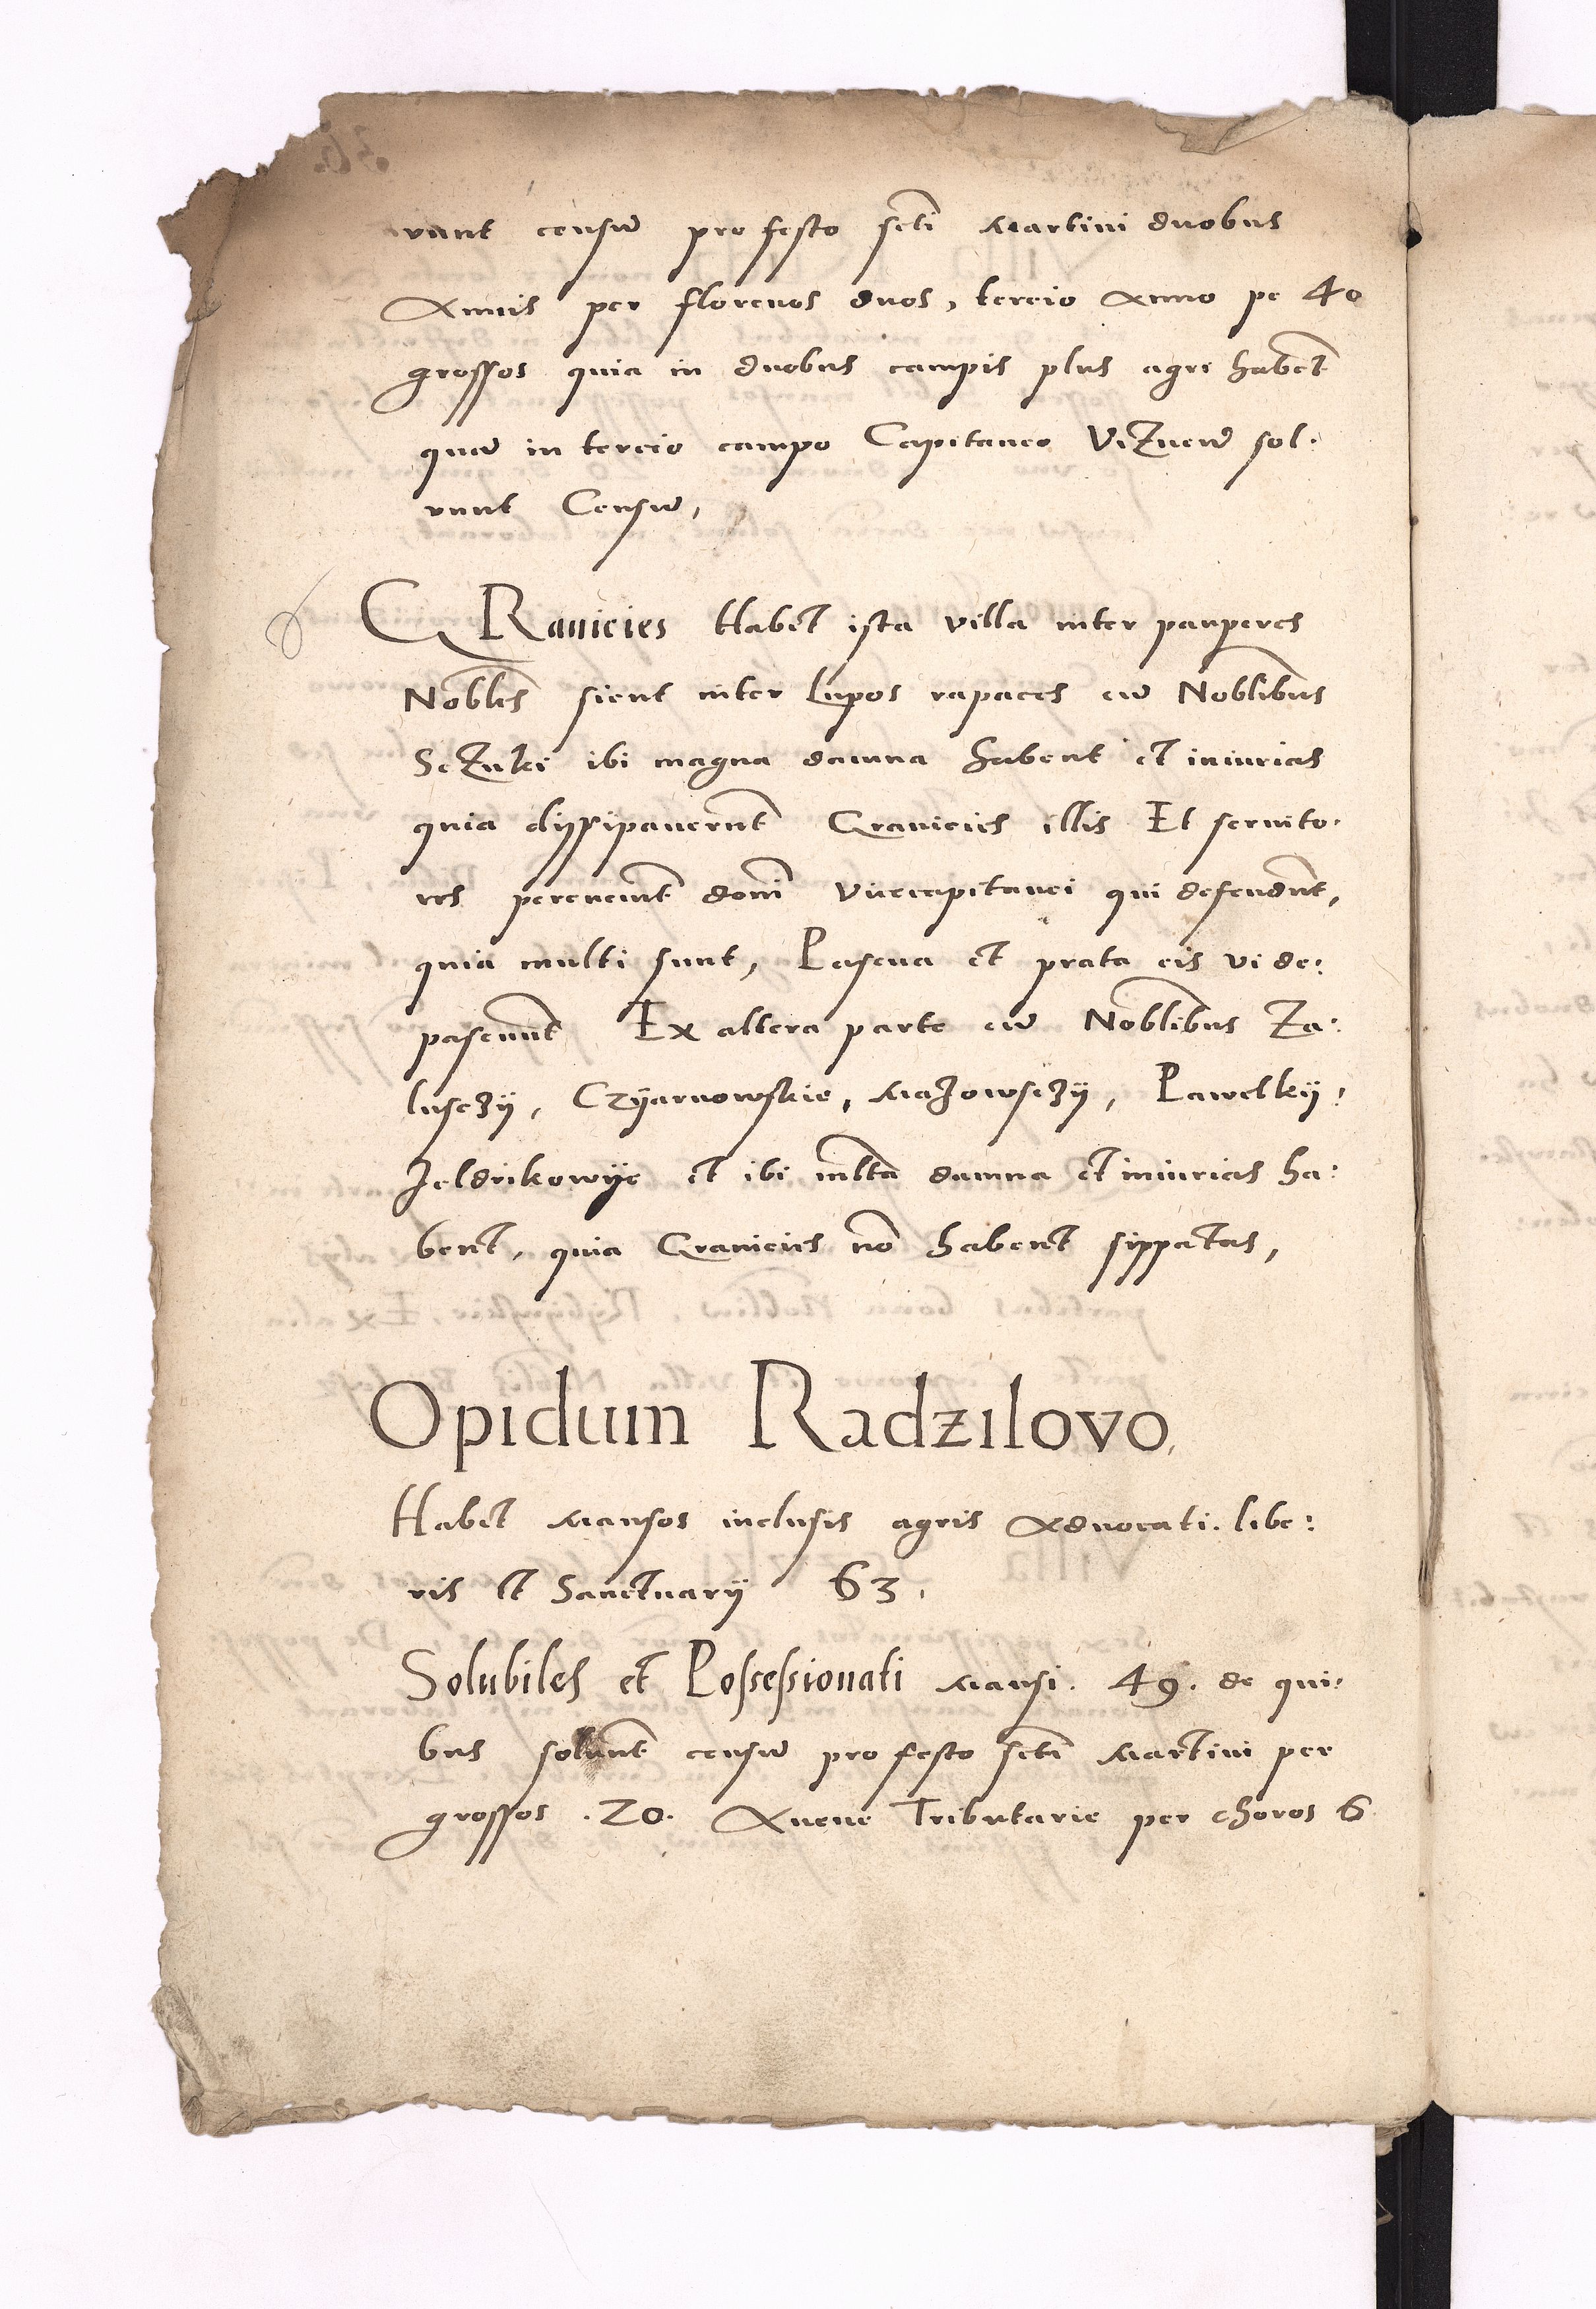 vunt censũ pro festo scti Martini duobus
Annis per florenos duos, tercio Anno pe 40
grossos quia in duobus campis plus agri habent
quã in tercio campo Capitaneo Viznen̄ sol:
vunt Censũ,
GRanicies Habet ista villa inter pauperes
Nobles sicut inter Lupos rapaces cũ Noblibus
Sczuki ibi magna damna habent et iniurias
quia dyssipauerunt Granicies illis Et seruito:
res percuciunt domi Vicecapitanei qui defendunt,
quia multi sunt, Pascua et prata eis vi de:
pascuunt Ex altera parte cũ Noblibus Za:
lusczÿ, Czÿarnowskie, Mazowsczÿ, Pawelkÿ:
Jeldrikowÿe et ibi mlta damna et iniurias ha:
bent, quia Granicies nō habent sippatas,
Opidum Radzilovo,
Habet Mansos inclusis agris Aduocati. libe:
ris et Sanctuarÿ 63.
Solubiles et Possessionati Mansi. 49. de qui:
bus solunt censũ pro festo scti Martini per
grossos .20. Auene Tributarie per choros 6